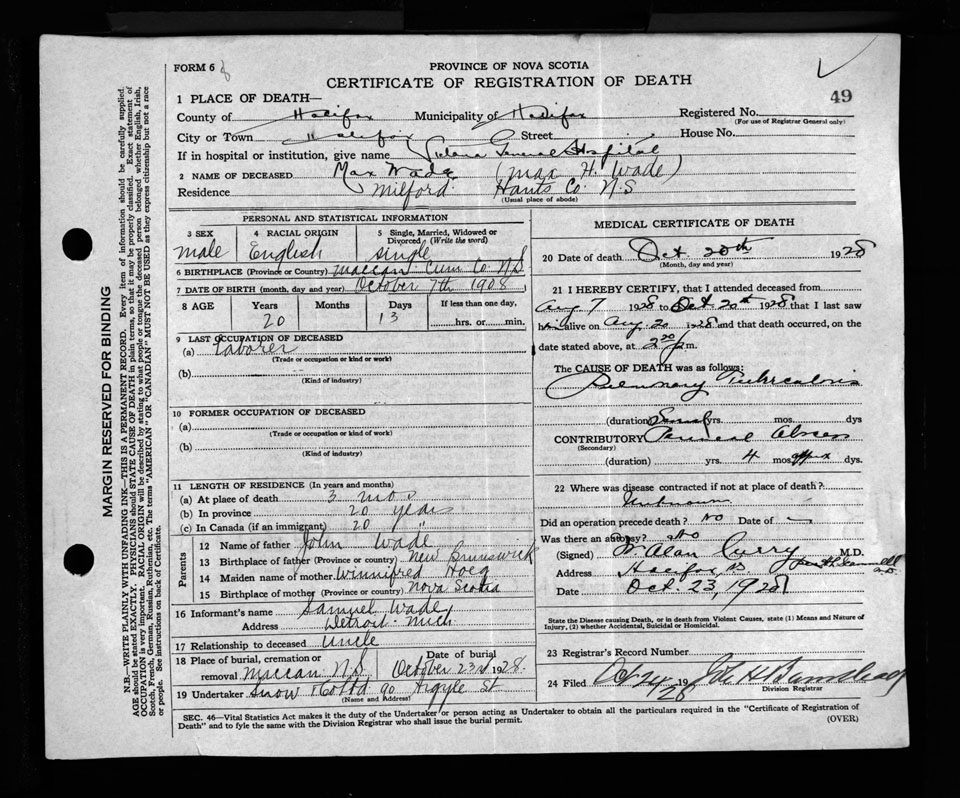 FORM 6
PROVINCE OF NOVA SCOTIA
CERTIFICATE OF REGISTRATION OF DEATH
49
1 PLACE OF DEATH—
County of Halifax Municipality of Halifax Registered No.
(For use of Registrar General only)
City or Town Halifax Street House No.
If in hospital or institution, give name Victoria General Hospital
2 NAME OF DECEASED Max Wade (Max H. Wade)
Residence Milford Hants Co. N.S
(Usual place of abode)
PERSONAL AND STATISTICAL INFORMATION
3 SEX 4 RACIAL ORIGIN 5 Single, Married, Widowed or Divorced (Write the word)
male English single
6 BIRTHPLACE (Province or Country) Maccan Cum Co. N S
7 DATE OF BIRTH (month, day and year) October 7th 1908
8 AGE Years Months Days If less than one day,
20 13 hrs. or min.
9 LAST OCCUPATION OF DECEASED
(a) Laborer
(Trade or occupation or kind or work)
(b)
(Kind of industry)
10 FORMER OCCUPATION OF DECEASED
(a)
(Trade or occupation or kind of work)
(b)
(Kind of industry)
11 LENGTH OF RESIDENCE (In years and months)
(a) At place of death 3 mos
(b) In province 20 years
(c) In Canada (if an immigrant) 20 "
Parents
12 Name of father John Wade
13 Birthplace of father (Province or country) New Brunswick
14 Maiden name of mother Winnifred Hoeg
15 Birthplace of mother (Province or country) Nova Scotia
16 Informant's name Samuel Wade
Address Detroit Mich
17 Relationship to deceased Uncle
18 Place of burial, cremation or removal Maccan N.S. Date of burial October 23rd 1928
19 Undertaker Snow & Co Ltd 90 Argyle St
(Name and Address)
MEDICAL CERTIFICATE OF DEATH
20 Date of death Oct 20th 1928
(Month, day and year)
21 I HEREBY CERTIFY, that I attended deceased from
Aug 7 1928 to Oct 20th 1928 that I last saw
him alive on Aug 20 1928 and that death occurred, on
date stated above, at m.
The CAUSE OF DEATH was as follows:
Pulmonary Tuberculosis
(duration) Several yrs. mos. dys
CONTRIBUTORY Abscess
(Secondary)
(duration) yrs. 4 mos. approx dys.
22 Where was disease contracted if not at place of death?
Unknown
Did an operation precede death? No Date of —
Was there an autopsy? No
(Signed) W Alan Curry M.D.
Address Halifax NS
Date Oct. 23, 1928
State the Disease causing Death, or in death from Violent Causes, state (1) Means and Nature of Injury, (2) whether Accidental, Suicidal or Homicidal.
23 Registrar's Record Number
24 Filed Oct 24/28 19
Division Registrar
SEC. 46—Vital Statistics Act makes it the duty of the Undertaker or person acting as Undertaker to obtain all the particulars required in the "Certificate of Registration of
Death" and to fyle the same with the Division Registrar who shall issue the burial permit.
(OVER)
MARGIN RESERVED FOR BINDING
N.B—WRITE PLAINLY WITH UNFADING INK—THIS IS A PERMANENT RECORD. Every item of information should be carefully supplied.
AGE should be stated EXACTLY. PHYSICIANS should STATE CAUSE OF DEATH in plain terms, so that it may be properly classified. Exact statement of
OCCUPATION is very important. RACIAL ORIGIN will be described by stating to what people or tongue the deceased person belonged whether English, Irish,
Scotch, French, German, Russian, Ruthenian, etc. The terms "AMERICAN" OR "CANADIAN" MUST NOT BE USED as they express citizenship but not a race
or people. See instructions on back of Certificate.